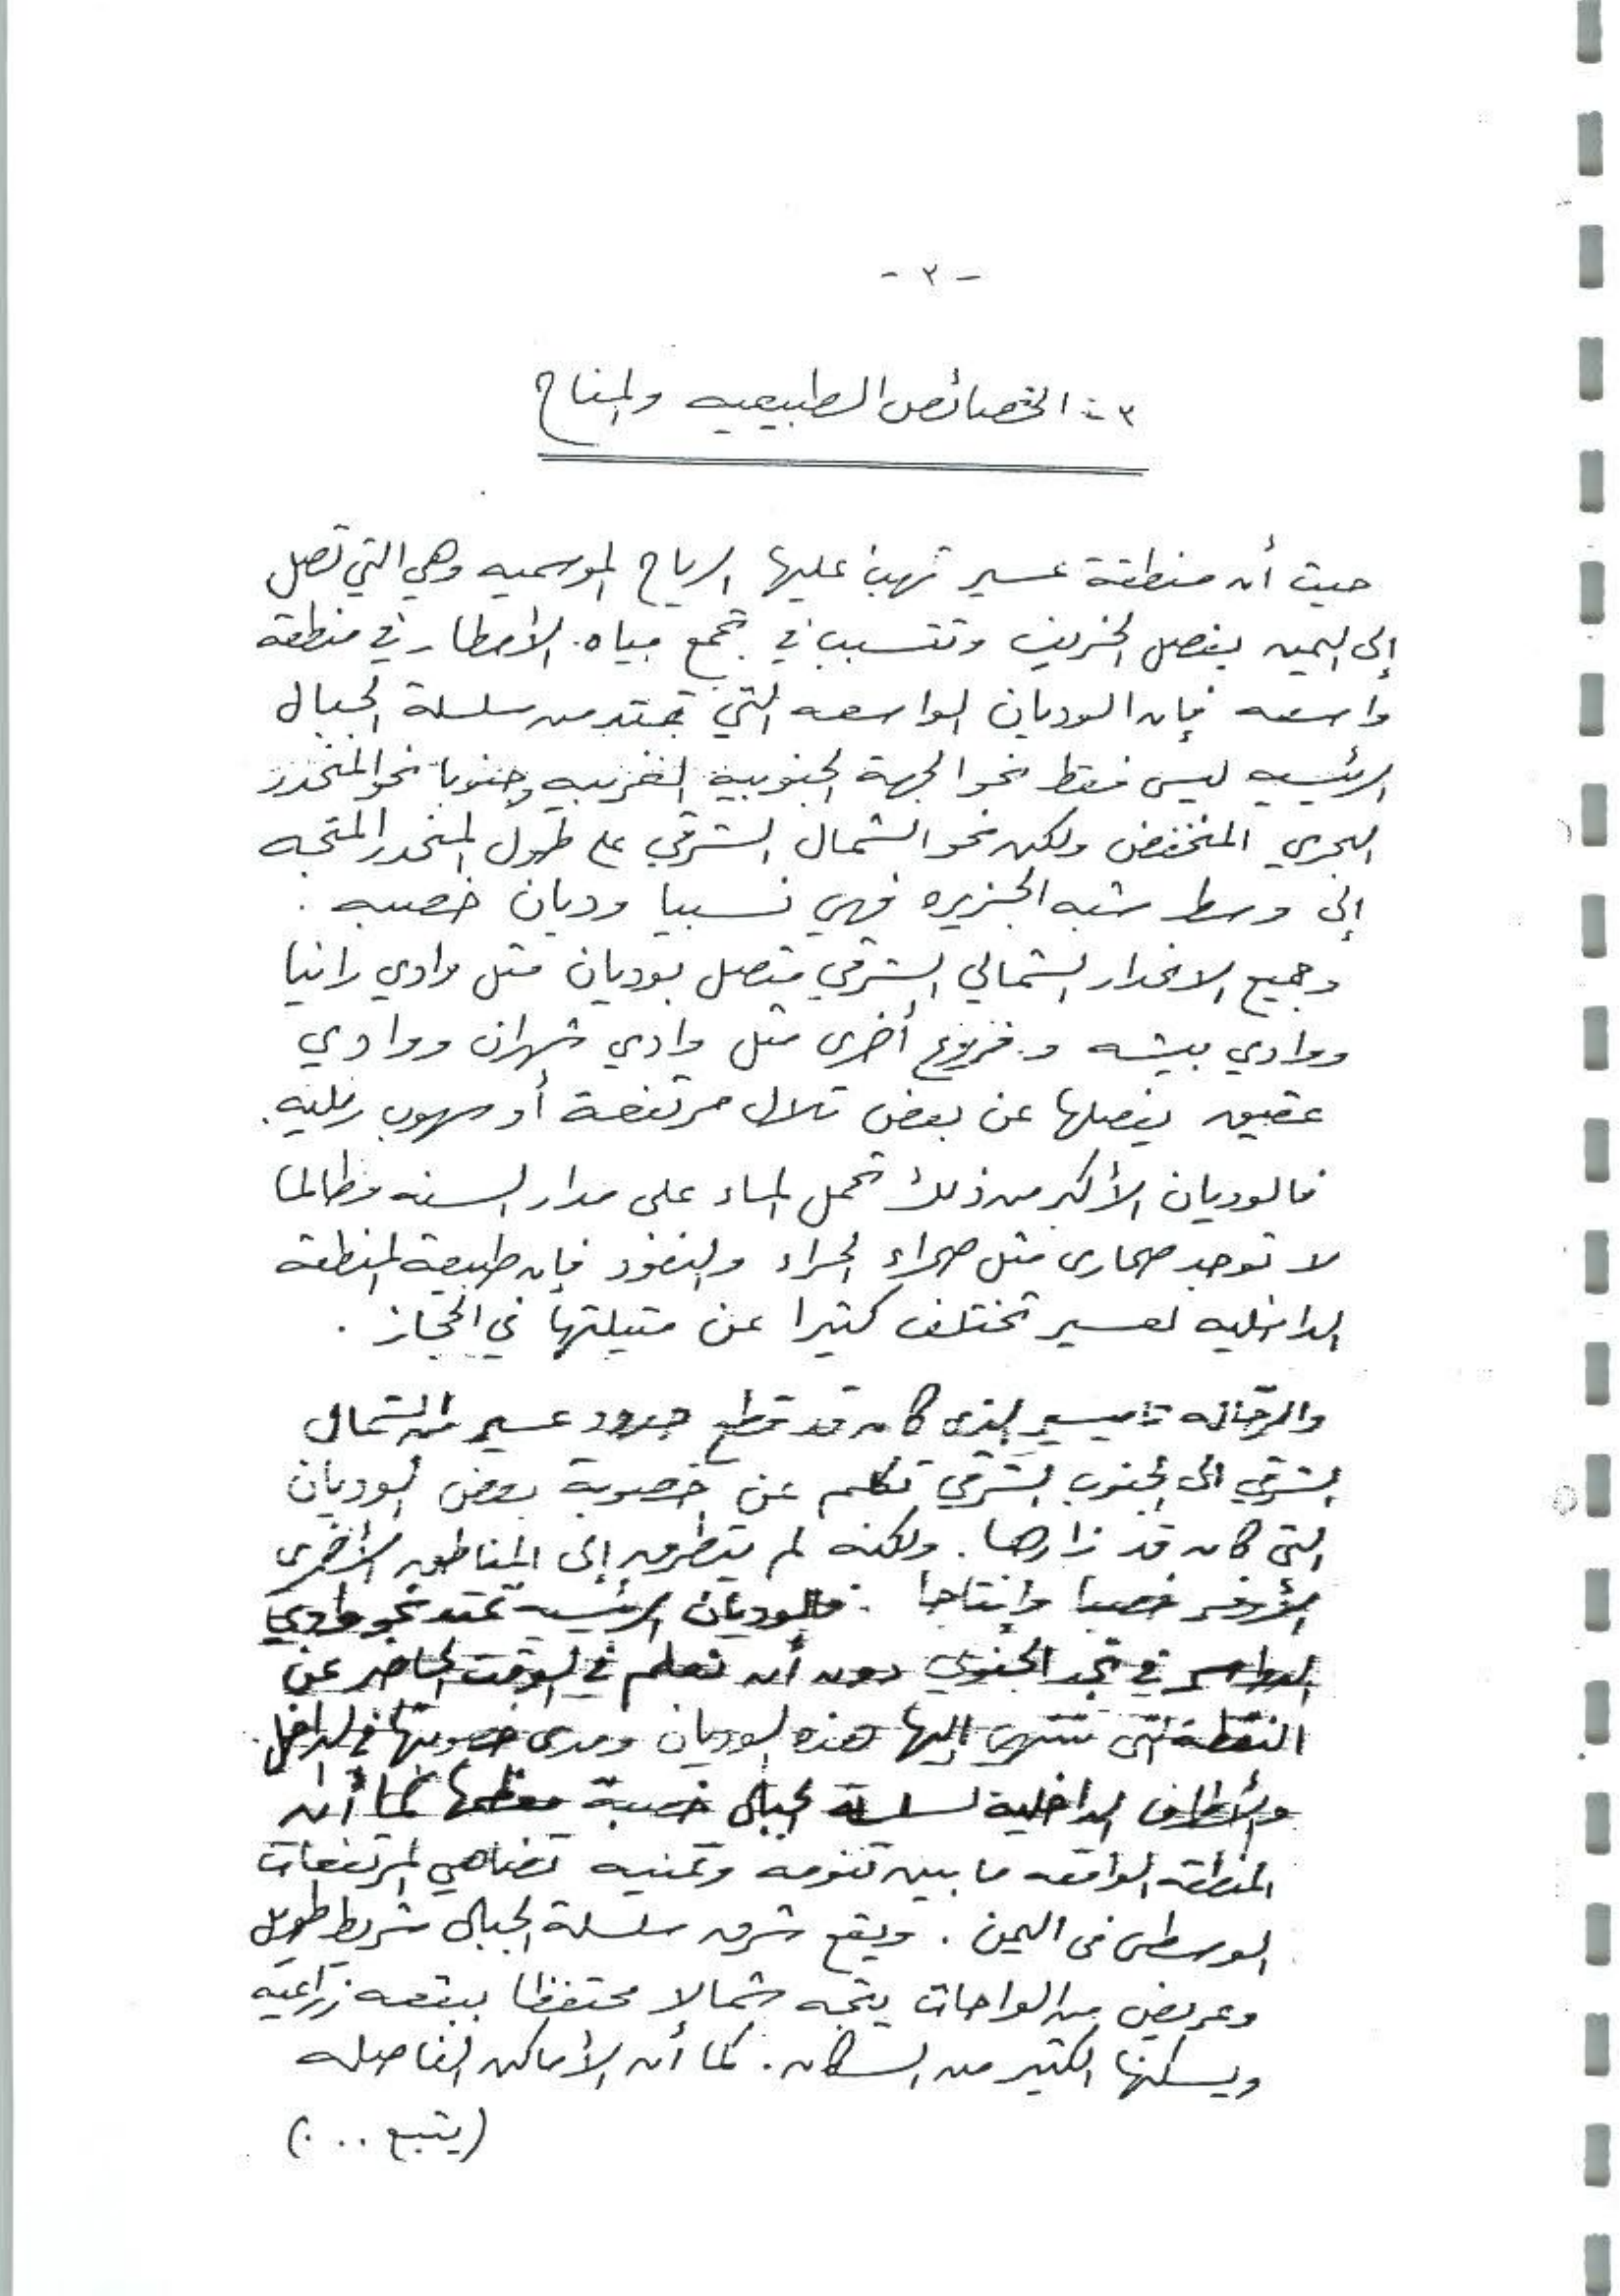 - ٣ -
٣ -: الخصائص الطبيعيه والمناخ
حيث أن منطقة عسير تهب عليها الرياح الموسميه وهي التي تصل
إلى اليمن بفصل الخريف وتتسبب في تجمع مياه الأمطار في منطقة
واسعه فإن الوديان الواسعه التي تمتد من سلسلة الجبال
الرئيسيه ليس فقط نحو الجهة الجنوبية الغربيه وجنوبا نحو المنحدر
البحري المنخفض ولكن نحو الشمال الشرقي على طول المنحدر المتجه
إلى وسط شبه الجزيره فهي نسبيا وديان خصبه .
وجميع الانحدار الشمالي الشرقي متصل بوديان مثل وادي رانيا
ووادي بيشه وفروع أخرى مثل وادي شهران ووادي
عقيق يفصلها عن بعض تلال مرتفعة أو سهوب رمليه.
فالوديان الأكبر من ذلك تحمل الماء على مدار السنه وطالما
لا توجد صحارى مثل صحراء الحراء والنفود فإن طبيعة المنطقه
الداخليه لعسير تختلف كثيرا عن مثيلتها في الحجاز .
والرحاله تاميسير الذى كان قد قطع حدود عسير من الشمال
الشرقي الى الجنوب الشرقي تكلم عن خصوبة بعض الوديان
التى كان قد زارها . ولكنه لم يتطرق إلى المناطق الأخرى
الأوفر خصبا وإنتاجا . فالوديان الرئيسيه تمتد نحو وادي
الدواسر في نجد الجنوبي دون أن نعلم في الوقت الحاضر عن
النقطة التى تنتهي إليها هذه الوديان ومدى خصوبتها في الداخل.
والأطراف الداخلية لسلسلة الجبال خصبة معظمها كما أن
المنطقه الواقعه ما بين تنومه وتمنيه تضاهي المرتفعات
الوسطى فى اليمن . ويقع شرق سلسلة الجبال شريط طويل
وعريض من الواحات يتجه شمالا محتفظا ببقعه زراعيه
ويسكنها الكثير من السكان . كما أن الأماكن الفاصله
(يتبع ...)